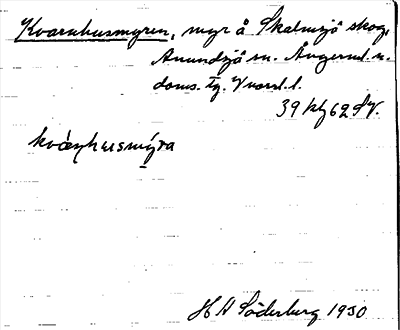 Kvarnhusmyren, myr å Skalmsjö skog,
Anundsjö sn. Ångerml. n.
doms. tg. Vnorrl. l.
39 Kbg 62 SV.
kvæ̀ɳhusmýra
H H Söderberg 1930